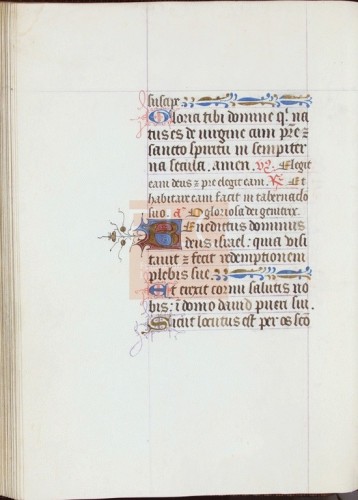 suscipe.
Gloria tibi domine q̇ na
tus es de virgine cum pr̄e ⁊
sancto spiritu in sempiter
na secula. amen. v̸. Elegit
eam deus ⁊ pre elegit eam. R̸. Et
habitare eam facit in tabernaclo
suo. a᷑ O gloriosa dei genitrix.
Benedictus dominus
deus israel: quia visi
tauit ⁊ fecit redemptionem
plebis sue.
Et erexit cornu salutis no
bis: ī domo dauid pueri sui.
Sicut locutus est per os scō